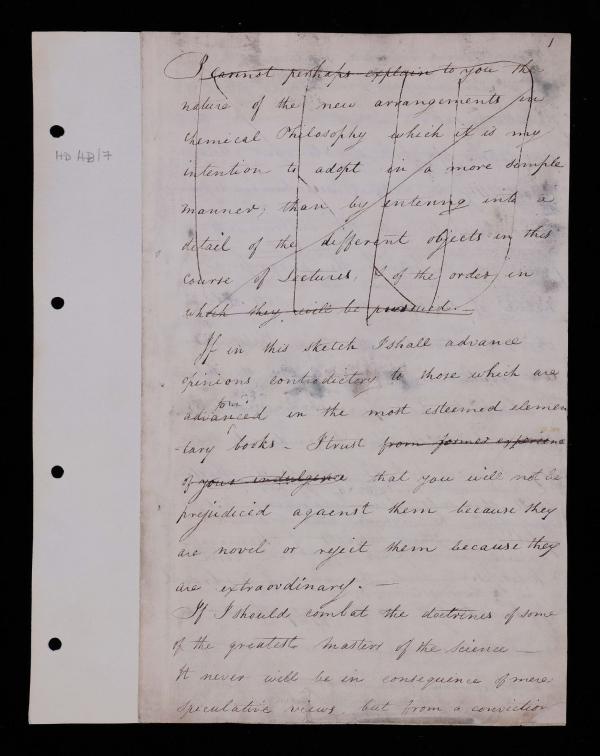 1
HD 4B/7
I cannot perhaps explain to you the
nature of the new arrangements in
Chemical Philosophy which it is my
intention to adopt in a more simple
manner; than by entering into a
detail of the different objects in this
course of Lectures, & of the order in
which they will be pursued. —
If in this sketch I shall advance
opinions contradictory to those which are
advanced in the most esteemed elemen
-tary books – I trust from former experience
of your indulgence that you will not be
prejudiced against them because they
are novel or reject them because they
are extraordinary. —
If I should combat the doctrines of some
of the greatest masters of the science —
It never will be in consequence of mere
speculative views, but from a conviction